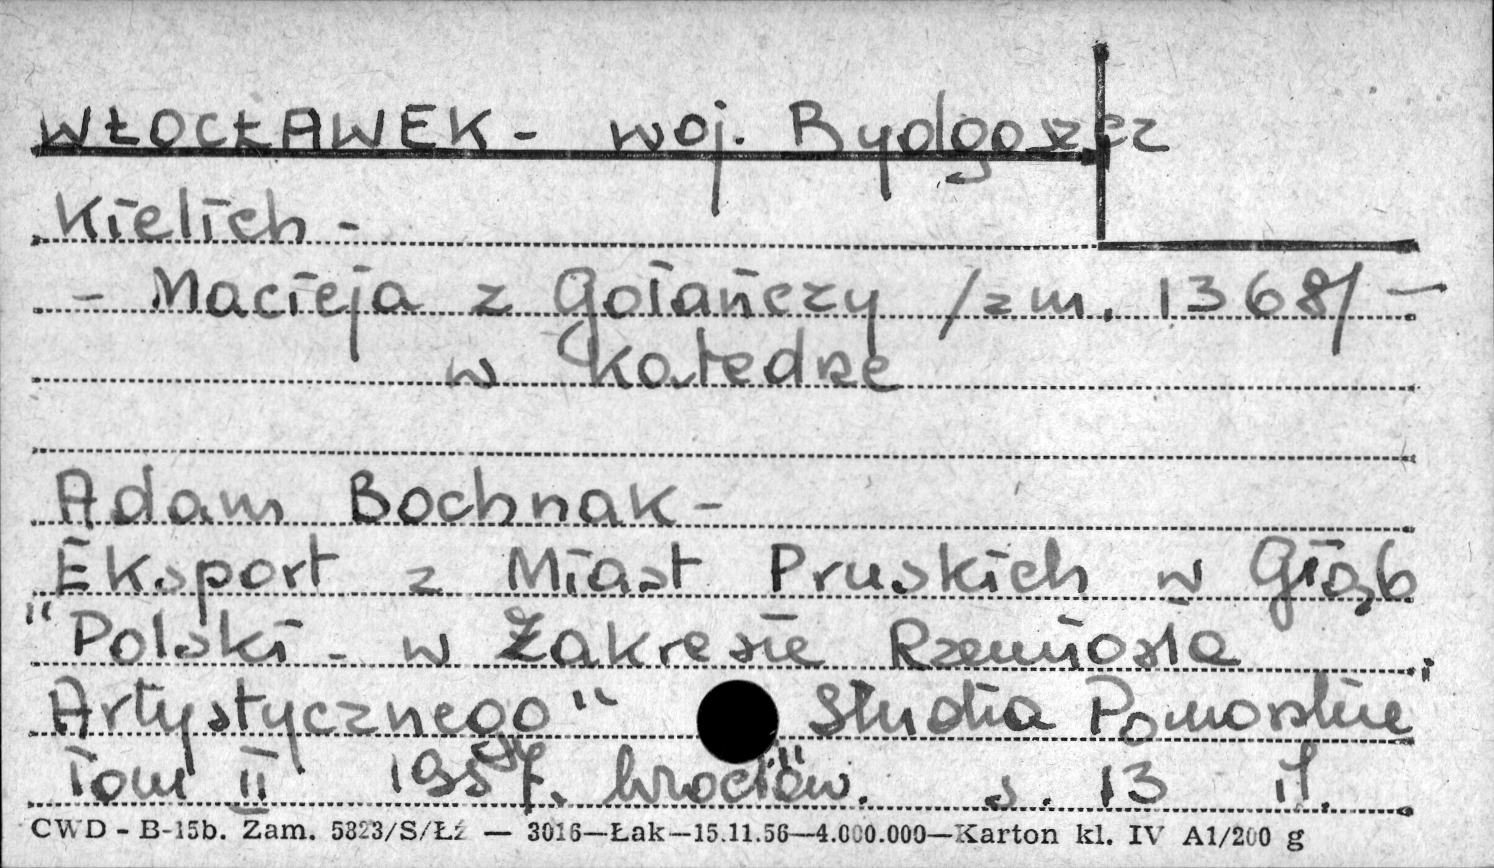 WŁOCŁAWEK - woj. Bydgoszcz
Kielich -
- Macieja z Gołańczy /zm. 1368/ -
w Katedrze
Adam Bochnak -
Eksport z Miast Pruskich w Głąb
"Polski - w Zakresie Rzemiosła
Artystycznego" „Studia Pomorskie
Tom II 1957. Wrocław." s. 13 il.
CWD - B-15b. Zam. 5823/S/Łź — 3016—Łak—15.11.56—4.000.000—Karton kl. IV A1/200 g